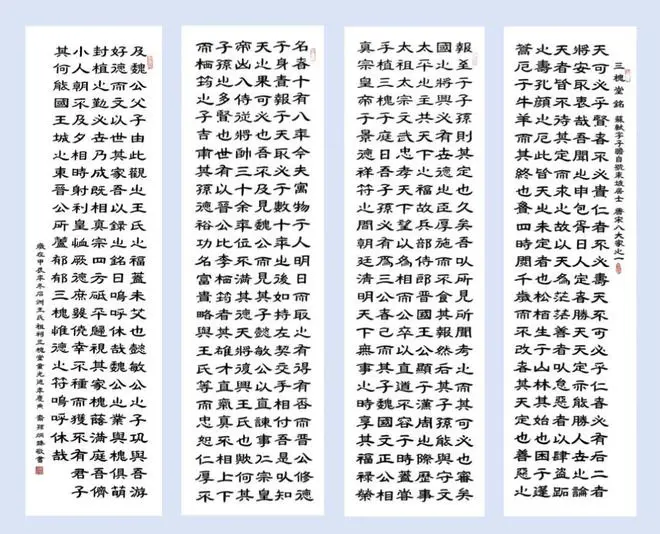 三槐堂銘 蘇軾字子瞻自號東坡居士 唐宋八大家之一
天可必乎賢者不必貴仁者不必壽天不可必乎仁者必有后二者
將安取衷哉吾聞之申包胥曰人定者勝天天定亦能勝人世之論
天者皆不待其定而求之故以天為茫茫善者以怠惡者以肆盜跖
之壽孔顏之厄此皆天之未定者也松栢生于山林其始也困于蓬
蒿厄于牛羊而其終也貫四時閱千歲而不改者其天定也善惡之
報至于子孫則其定也久矣吾以所見所聞考之而其可必也審矣
國之將興必有世德之臣厚施而不食其報然后其子孫能與守文
太平之主共天下之福故兵部侍郎晉國王公顯于漢周之際歷事
太祖太宗文武忠孝天下望以為相而公卒以直道不容于時蓋嘗
手植三槐于庭曰吾子孫必有為三公者已而其子魏國文正公相
真宗皇帝于景德祥符之間朝廷清明天下無事之時享其福祿榮
名者十有八年今夫寓物于人明日而取之有得有否而晉公修德
于身責報于天取必于數十年之後如持左契交手相付吾是以知
天之果可必也吾不及見魏公而見其子懿敏公以直諫事仁宗皇
帝出入侍從將帥三十余年位不滿其德天將復興王氏也歟何其
子孫之多賢也世有以晉公比李栖筠者其雄才直氣真不相上下
而栖筠之子吉甫其孫德裕功名富貴略與王氏等而忠恕仁厚不
及魏公父子由此觀之王氏之福蓋未艾也懿敏公之子巩與吾游
好德而文以世其家吾以錄之銘曰嗚呼休哉魏公之業與槐俱萌
封植之勤必世乃成既相真宗四方砥平歸視其家槐蔭滿庭吾儕
小人朝不及夕相時射利皇恤厥德庶幾僥幸不種而獲不有君子
其何能國王城之東晉公所廬郁郁三槐惟德之符嗚呼休哉
歲在甲辰年冬石洲王氏祖祠三槐堂重光 慶典 裔孫 敬書